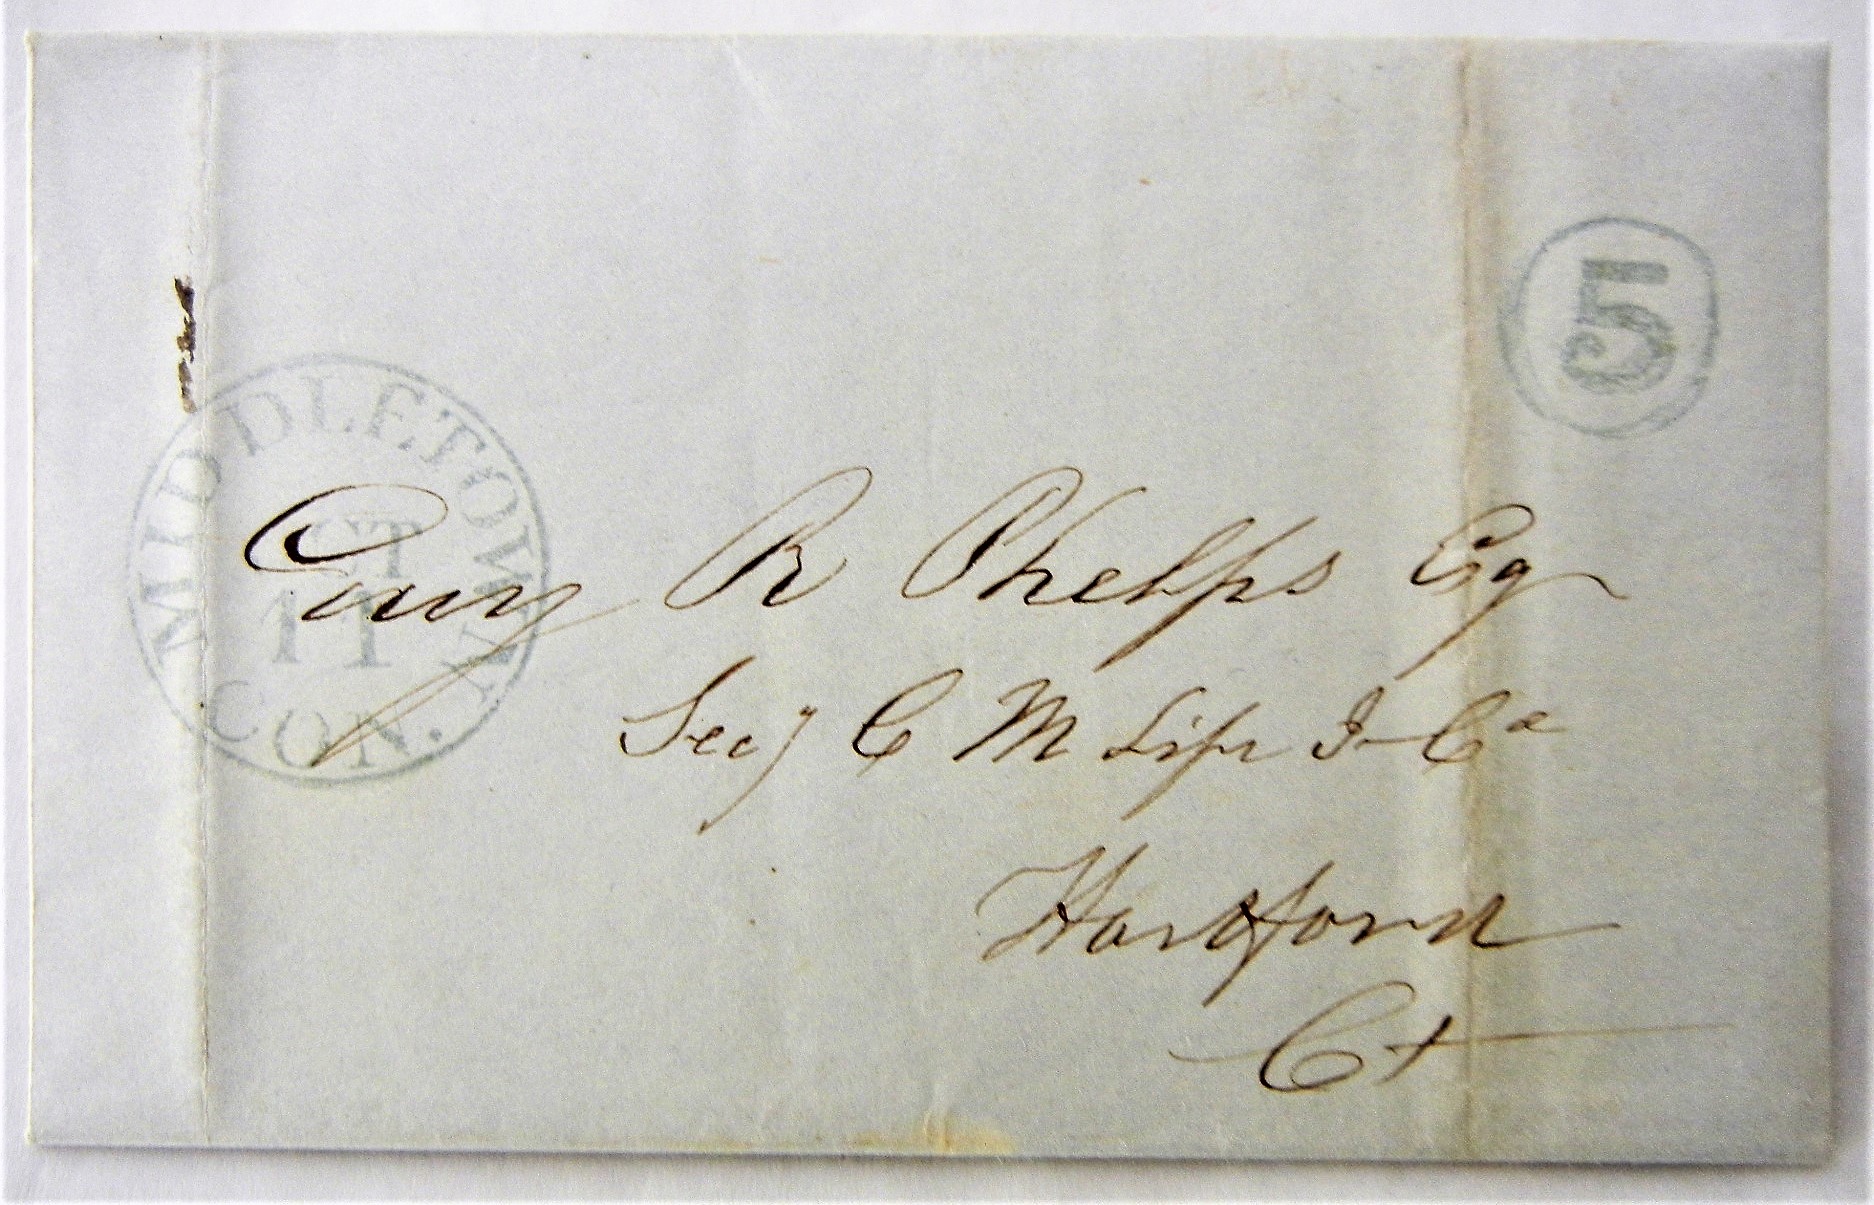 5
MIDDLETOWN
CT
11
CON.
Guy R Phelps Esq
Secy C M Life I Co
Hartford
Ct